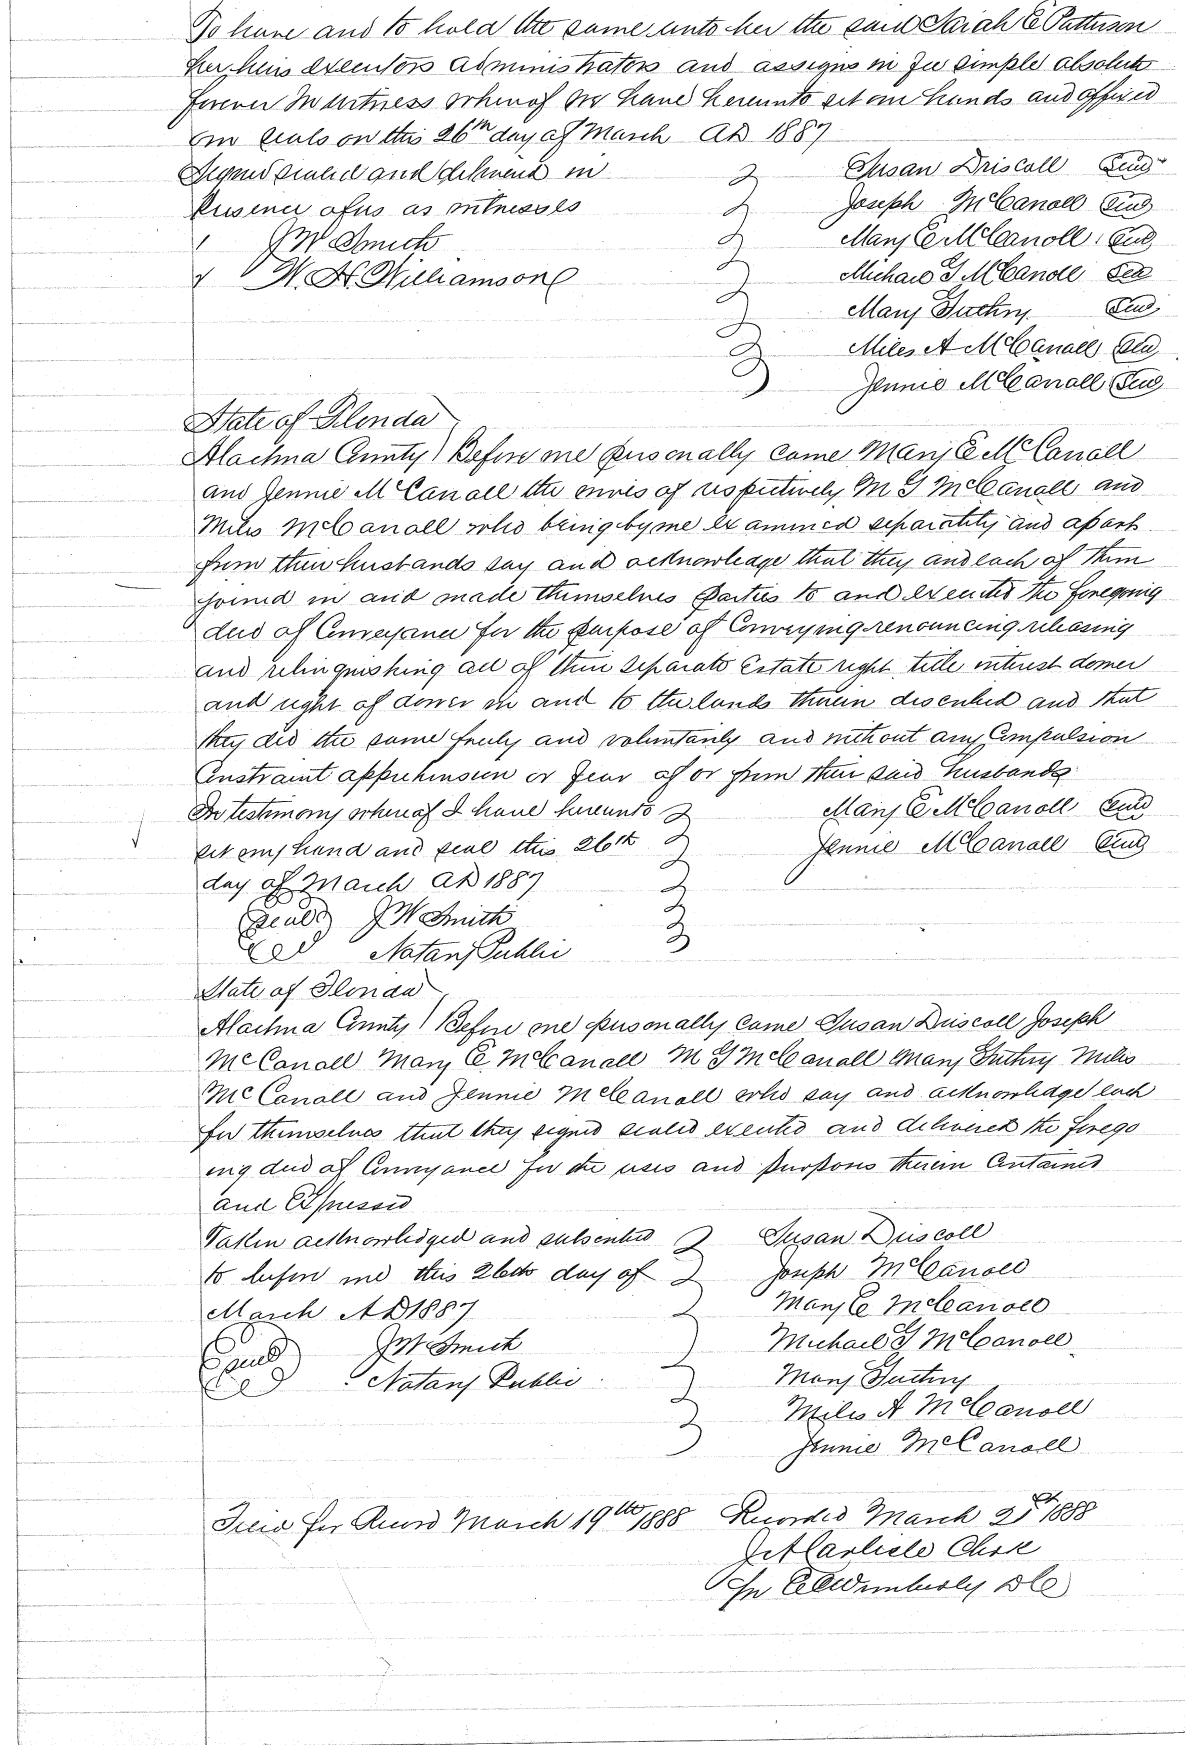 To have and to hold the same unto her the said Sarah E Patterson
her heirs executors administrators and assigns in fee simple absolute
forever In witness whereof we have hereunto set our hands and affixed
our seals on this 26th day of March AD 1887
Signed sealed and delivered in
Presence of us as witnesses
J W Smith
W. H. Williamson
Susan Driscoll Seal
Joseph McCanoll Seal
Mary E McCanoll Seal
Michael G McCanoll Seal
Mary Guthry Seal
Miles A McCanoll Seal
Jennie McCanoll Seal
State of Florida
Alachua County Before me personally came Mary E McCanoll
and Jennie McCanoll the wives of respectively M G McCanoll and
Miles McCanoll who being by me examined separately and apart
from their husbands say and acknowledge that they and each of them
joined in and made themselves parties to and executed the foregoing
deed of Conveyance for the purpose of Conveying renouncing releasing
and relinquishing all of their separate Estate right title interest dower
and right of dower in and to the lands therein described and that
they did the same freely and voluntarily and without any Compulsion
Constraint apprehension or fear of or from their said husbands
In testimony whereof I have hereunto
set my hand and seal this 26th
day of March AD 1887
Seal J W Smith
Notary Public
Mary E McCanoll Seal
Jennie McCanoll Seal
State of Florida
Alachua County Before me personally came Susan Driscoll Joseph
McCanoll Mary E McCanoll M G McCanoll Mary Guthry Miles
McCanoll and Jennie McCanoll who say and acknowledge each
for themselves that they signed sealed executed and delivered the forego
ing deed of Conveyance for the uses and purposes therein Contained
and Expressed
Taken acknowledged and subscribed
to before me this 26th day of
March AD 1887
Seal J W Smith
Notary Public
Susan Driscoll
Joseph McCanoll
Mary E McCanoll
Michael G McCanoll
Mary Guthry
Miles A McCanoll
Jennie McCanoll
Filed for Record March 19th 1888 Recorded March 1888
J A Carlisle Clerk
Wimberly DC